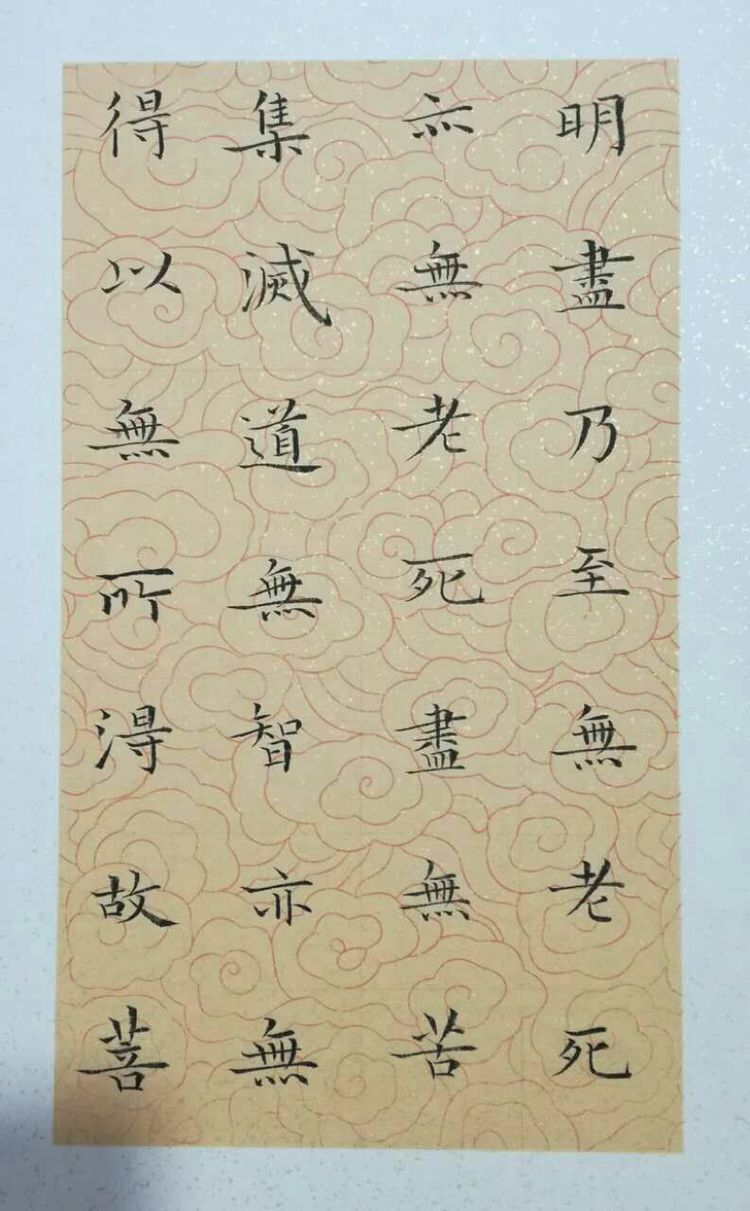 明盡乃至無老死
亦無老死盡無苦
集滅道無智亦無
得以無所淂故菩